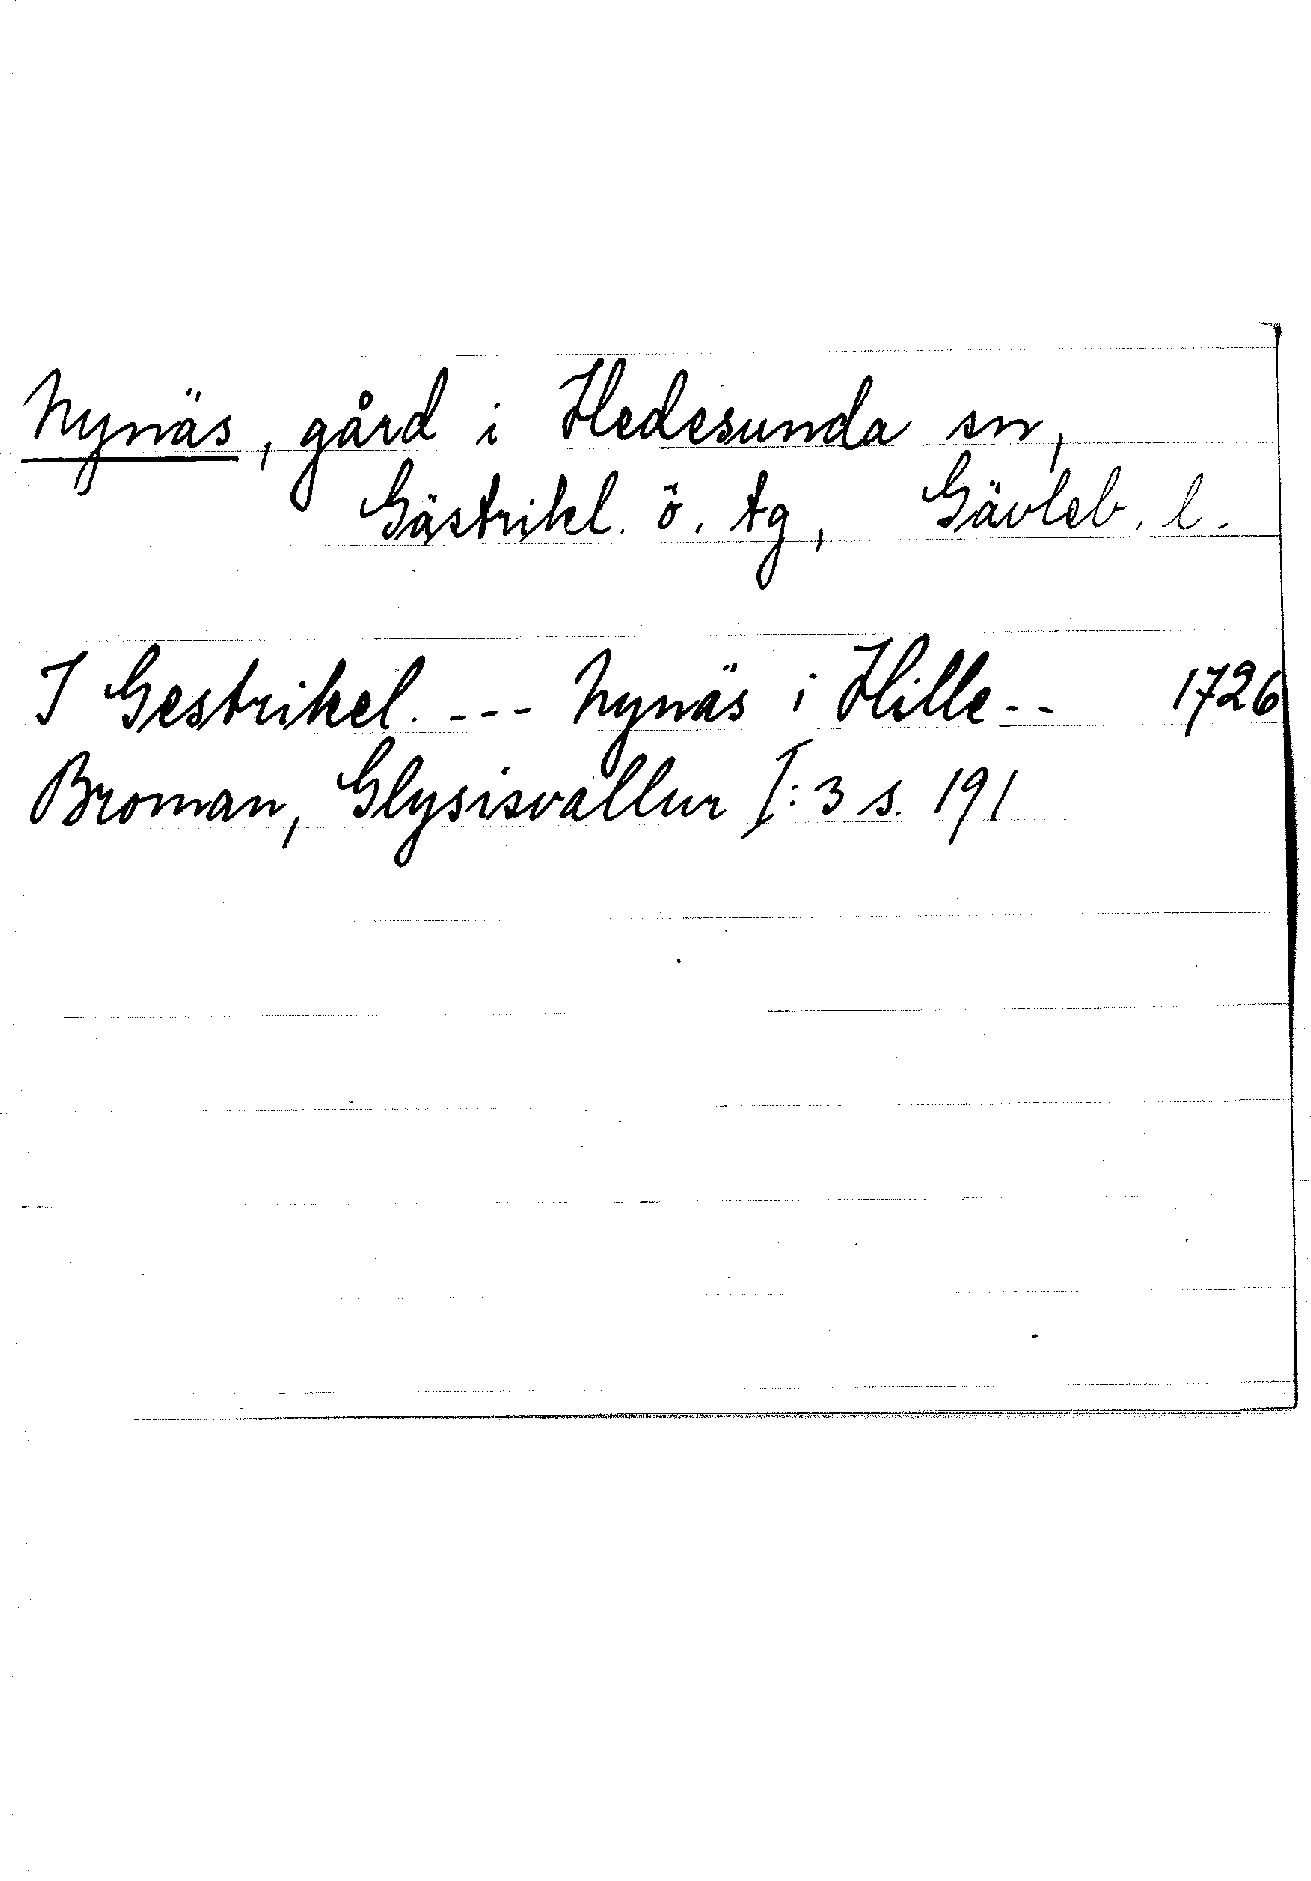 Nynäs, gård i Hedesunda sn,
Gästrikl. ö. tg, Gävleb. l.
I Gestrikel. --- Nynäs i Hille -- 1726
Broman, Glysisvallur I:3 s. 191